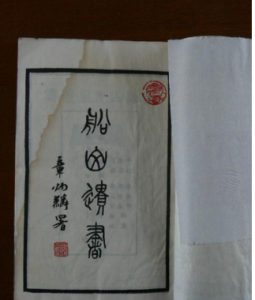 船山遺書
章炳麟署